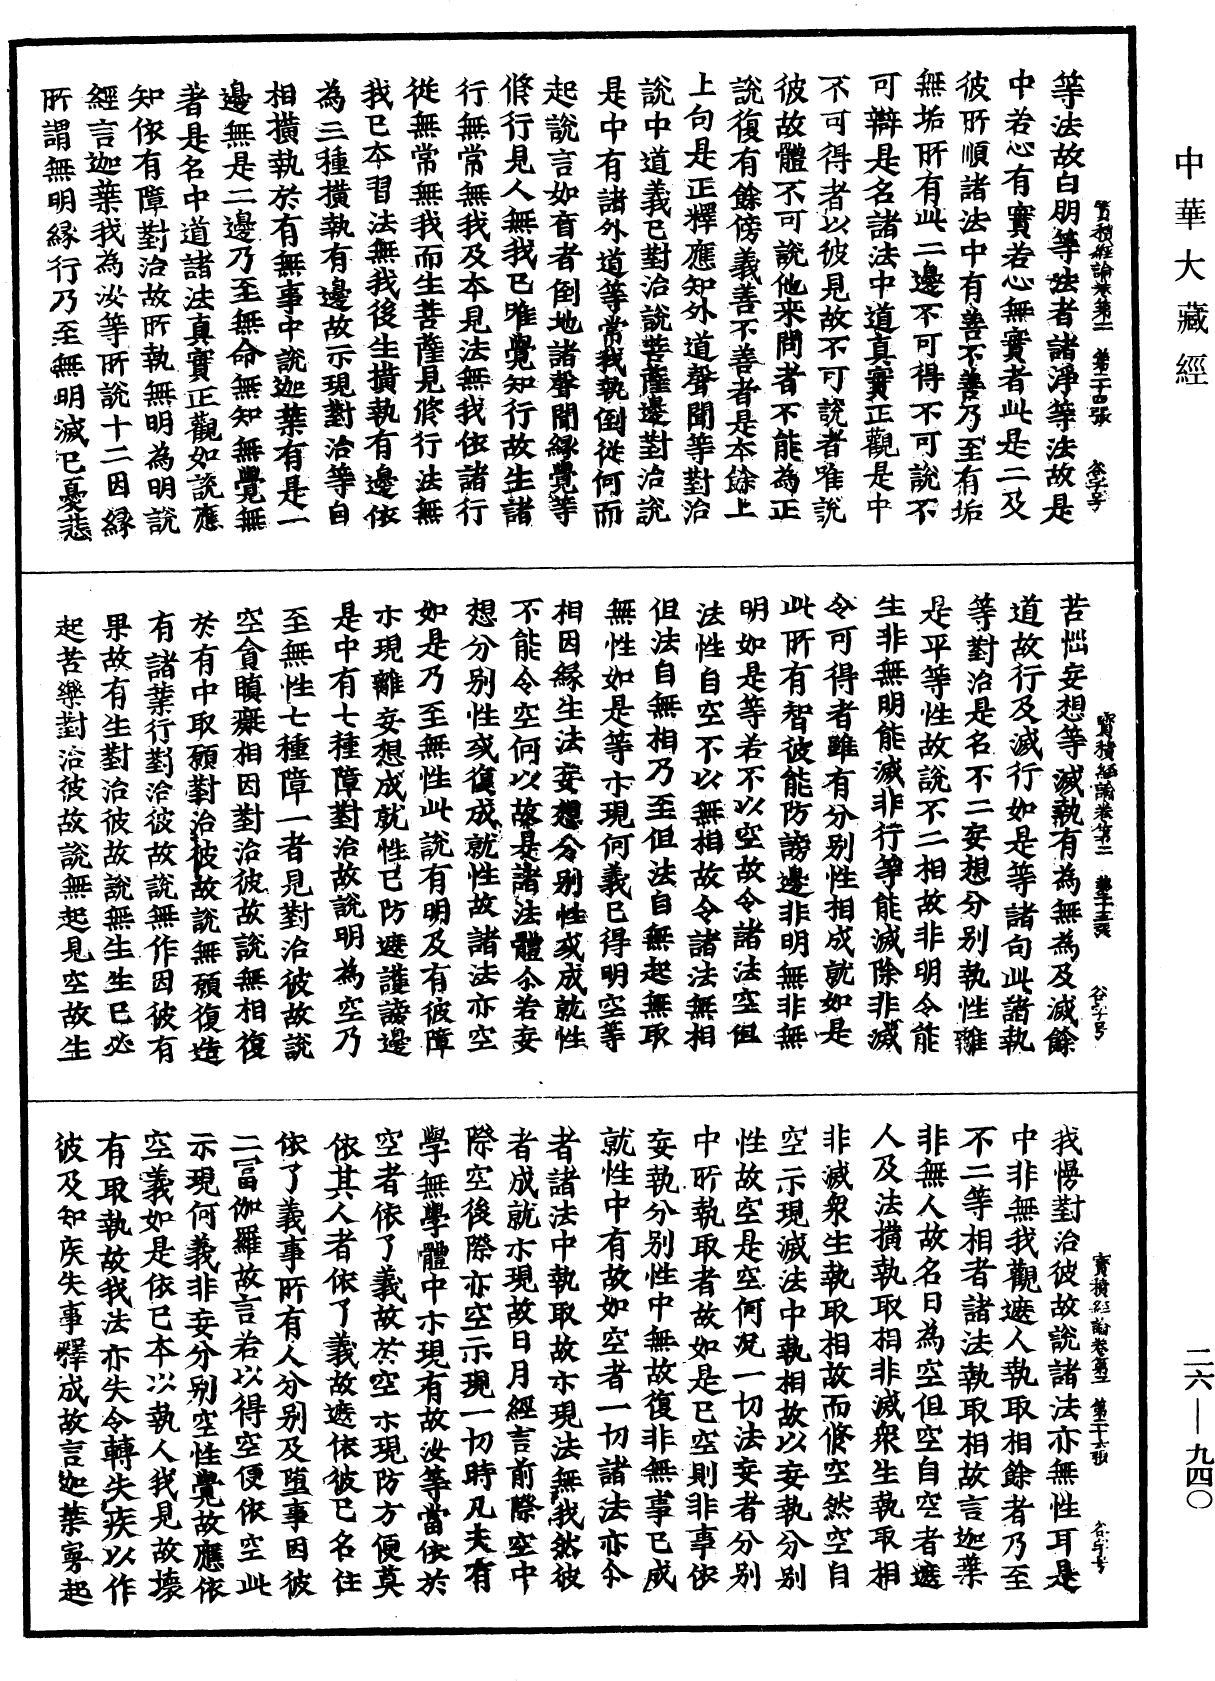 中華大藏經
寶積經論卷第二 第二十四張 谷字号
等法故白朋等法者諸淨等法故是
中若心有實若心無實者此是二及
彼所順諸法中有善不善乃至有垢
無垢所有此二邊不可得不可說不
可辯是名諸法中道真實正觀是中
不可得者以彼見故不可說者唯說
彼故體不可說他來問者不能為正
說復有餘傍義善不善者是本餘上
上句是正釋應知外道聲聞等對治
說中道義已對治說菩薩邊對治說
是中有諸外道等常我執倒從何而
起說言如盲者倒地諸聲聞緣覺等
脩行見人無我已唯覺知行故生諸
行無常無我及本見法無我依諸行
從無常無我而生菩薩見脩行法無
我已本習法無我後生橫執有邊依
為三種橫執有邊故示現對治等自
相橫執於有無事中說迦葉有是一
邊無是二邊乃至無命無知無覺無
著是名中道諸法真實正觀如說應
知依有障對治故所執無明為明說
經言迦葉我為汝等所說十二因緣
所謂無明緣行乃至無明滅已憂悲
寶積經論卷第二 第二十五張 谷字号
苦惱妄想等滅執有為無為及滅餘
道故行及滅行如是等諸句此諸執
等對治是名不二妄想分別執性離
是平等性故說不二相故非明令能
生非無明能滅非行等能滅除非滅
令可得者雖有分別性相成就如是
此所有智彼能防謗邊非明無非無
明如是等若不以空故令諸法空但
法性自空不以無相故令諸法無相
但法自無相乃至但法自無起無取
無性如是等示現何義已得明空等
相因緣生法妄想分別性或成就性
不能令空何以故是諸法體尒若妄
想分別性或復成就性故諸法亦空
如是乃至無性此說有明及有彼障
示現離妄想成就性已防遮護謗邊
是中有七種障對治故說明為空乃
至無性七種障一者見對治彼故說
空貪瞋癡相因對治彼故說無相復
於有中取願對治彼故說無願復造
有諸業行對治彼故說無作因彼有
果故有生對治彼故說無生生已必
起苦樂對治彼故說無起見空故生
寶積經論卷第二 第二十六張 谷字号
我慢對治彼故說諸法亦無性耳是
中非無我觀遮人執取相餘者乃至
不二等相者諸法執取相故言迦葉
非無人故名曰為空但空自空者遮
人及法橫執取相非滅衆生執取相
非滅衆生執取相故而脩空然空自
空示現滅法中執相故以妄執分別
性故空是空何況一切法妄者分別
中所執取者故如是已空則非事依
妄執分別性中無故復非無事已成
就性中有故如空者一切諸法亦尒
者諸法中執取故示現法無我然彼
者成就示現故曰月經言前際空中
際空後際亦空示現一切時凡夫有
學無學體中示現有故汝等當依於
空者依了義故於空示現防方便莫
依其人者依了義故遮依彼已名住
依了義事所有人分別及墮事因彼
二冨伽羅故言若以得空便依空此
示現何義非妄分別空性覺故應依
空義如是依已本以執人我見故壞
有取執故我法亦失令轉失疾以作
彼及知疾失事釋成故言迦葉寧起
二六—九四〇